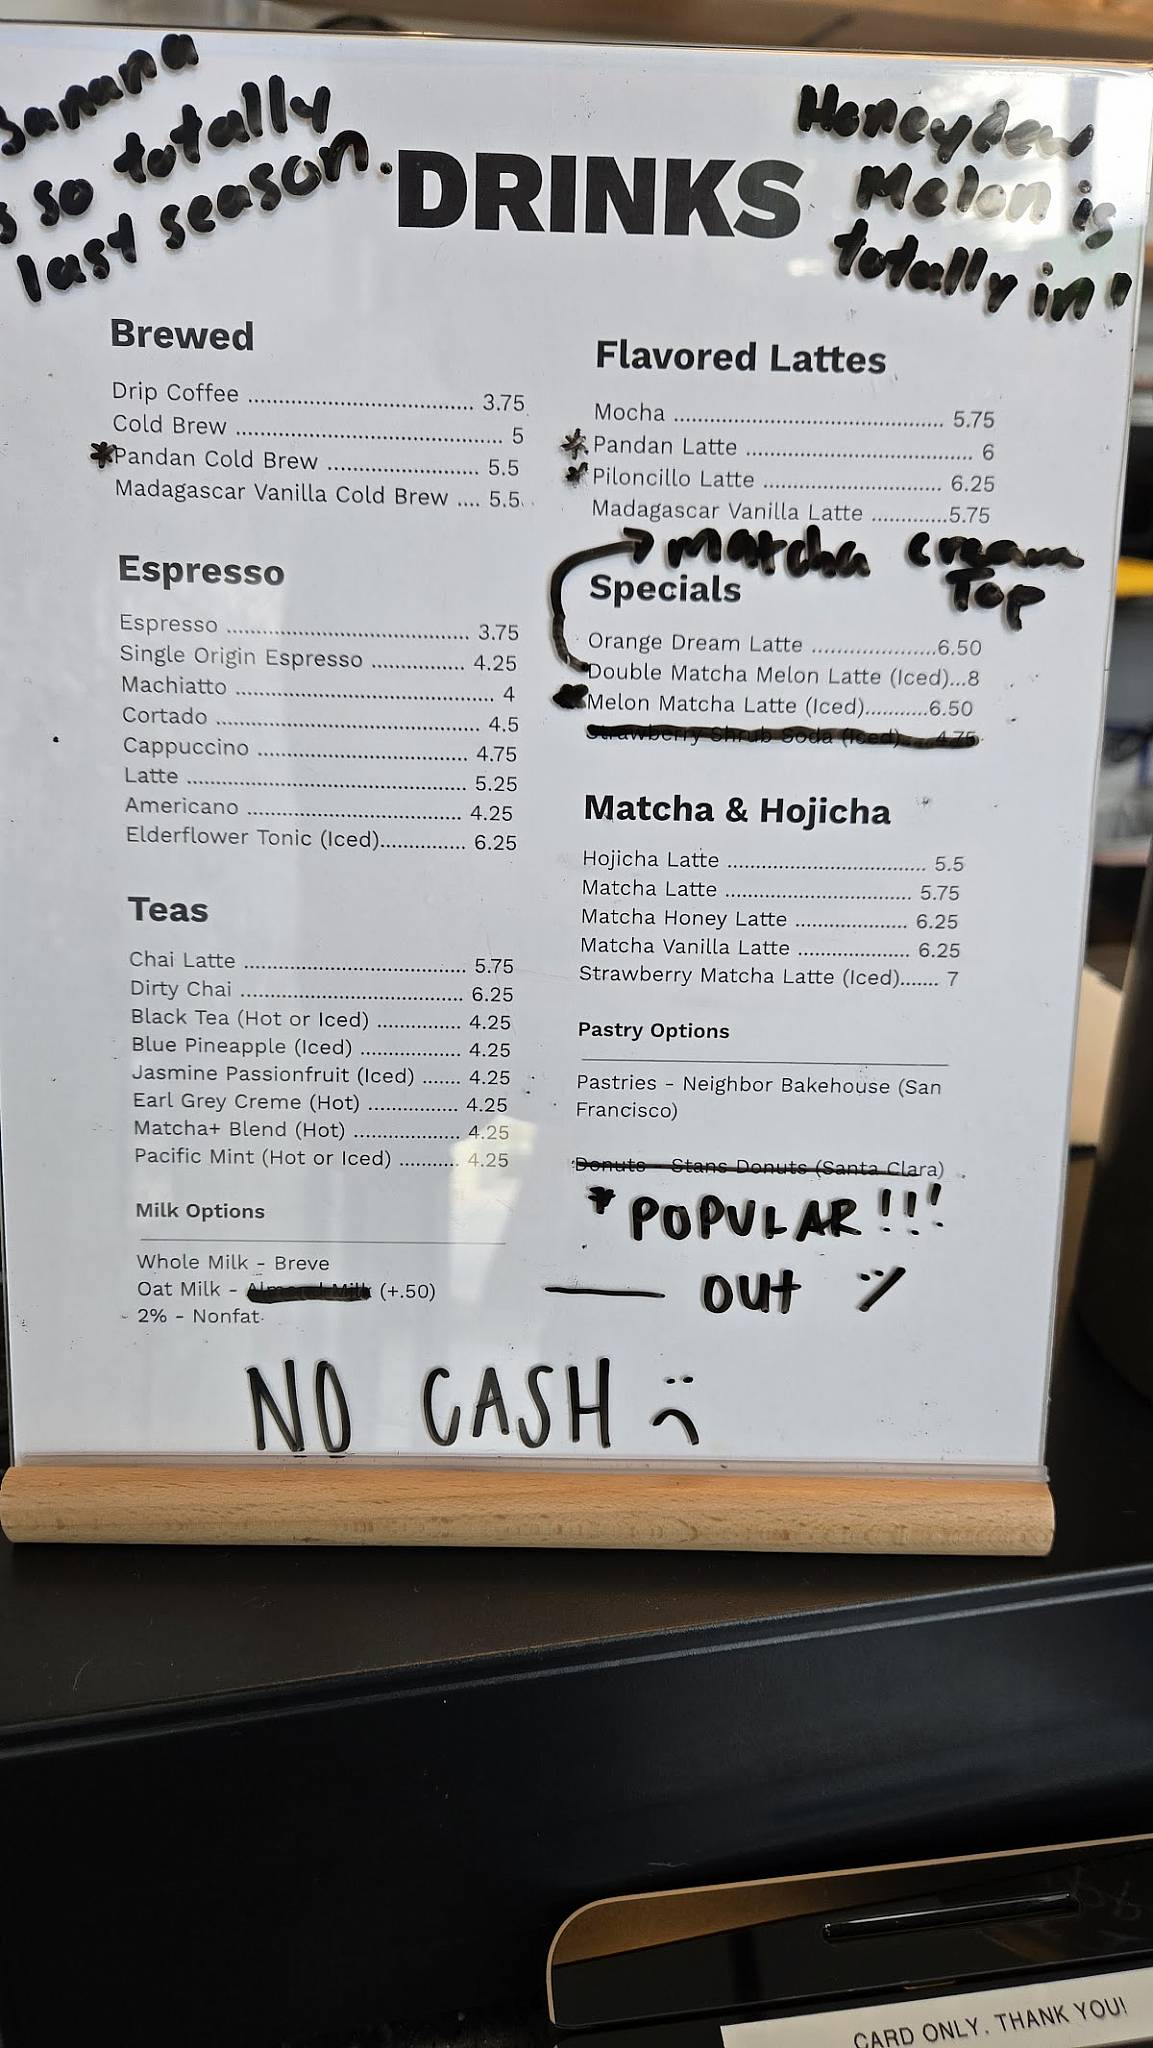 Banana
is so totally
last season.
Honeydew
Melon is
totally in!
DRINKS
Brewed
Drip Coffee ................................... 3.75
Cold Brew ......................................... 5
*Pandan Cold Brew ....................... 5.5
Madagascar Vanilla Cold Brew .... 5.5
Espresso
Espresso ..................................... 3.75
Single Origin Espresso .............. 4.25
Machiatto ......................................... 4
Cortado .......................................... 4.5
Cappuccino ................................ 4.75
Latte .......................................... 5.25
Americano ................................. 4.25
Elderflower Tonic (Iced)............... 6.25
Teas
Chai Latte .................................. 5.75
Dirty Chai .................................. 6.25
Black Tea (Hot or Iced) ............. 4.25
Blue Pineapple (Iced) ................ 4.25
Jasmine Passionfruit (Iced) ....... 4.25
Earl Grey Creme (Hot) ................ 4.25
Matcha+ Blend (Hot) .................. 4.25
Pacific Mint (Hot or Iced) .......... 4.25
Milk Options
Whole Milk - Breve
Oat Milk - Almond Milk (+.50)
2% - Nonfat
Flavored Lattes
Mocha ......................................... 5.75
*Pandan Latte .................................. 6
*Piloncillo Latte ........................... 6.25
Madagascar Vanilla Latte ............5.75
matcha cream
Top
Specials
Orange Dream Latte ....................6.50
Double Matcha Melon Latte (Iced)...8
*Melon Matcha Latte (Iced)...........6.50
Strawberry Shrub Soda (Iced)....4.75
Matcha & Hojicha
Hojicha Latte .............................. 5.5
Matcha Latte ............................. 5.75
Matcha Honey Latte .................. 6.25
Matcha Vanilla Latte ................. 6.25
Strawberry Matcha Latte (Iced)....... 7
Pastry Options
Pastries - Neighbor Bakehouse (San
Francisco)
Donuts - Stans Donuts (Santa Clara)
* POPULAR!!!
— out :/
NO CASH :(
CARD ONLY. THANK YOU!